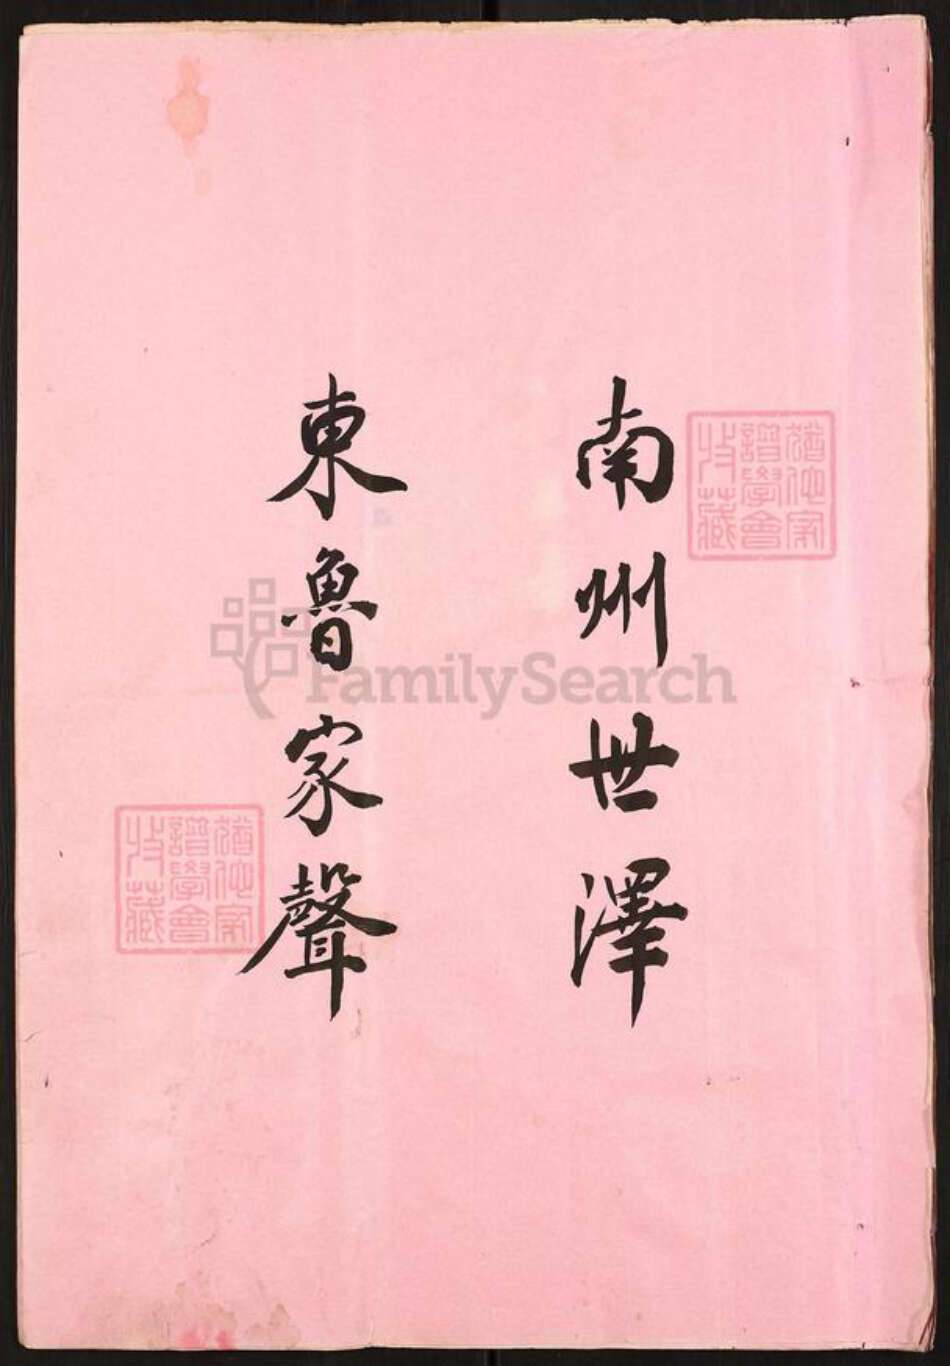 南州世澤
東魯家聲
猶他家
譜學會
收藏
猶他家
譜學會
收藏
FamilySearch